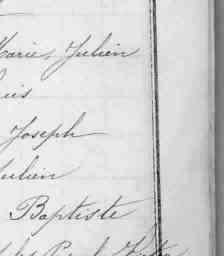 Marie, Julien
uis
Joseph
Julien
Baptiste